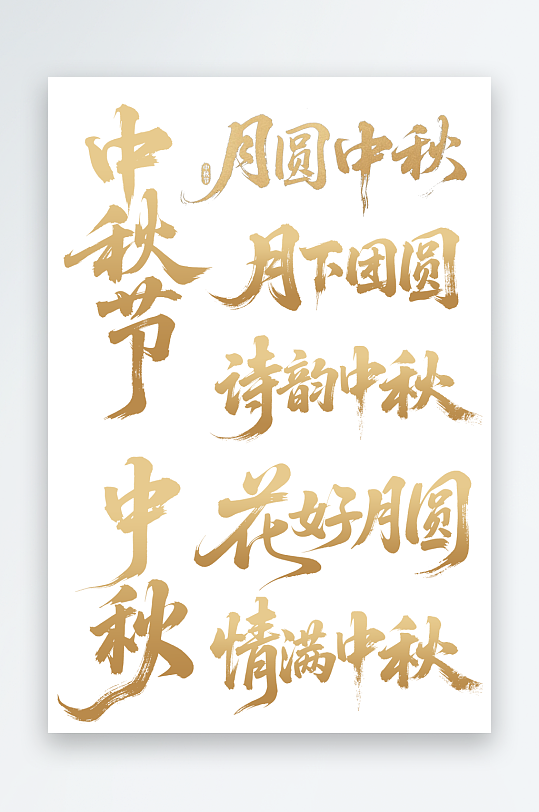 中秋节
月圆中秋
中秋节
月下团圆
诗韵中秋
中秋
花好月圆
情满中秋